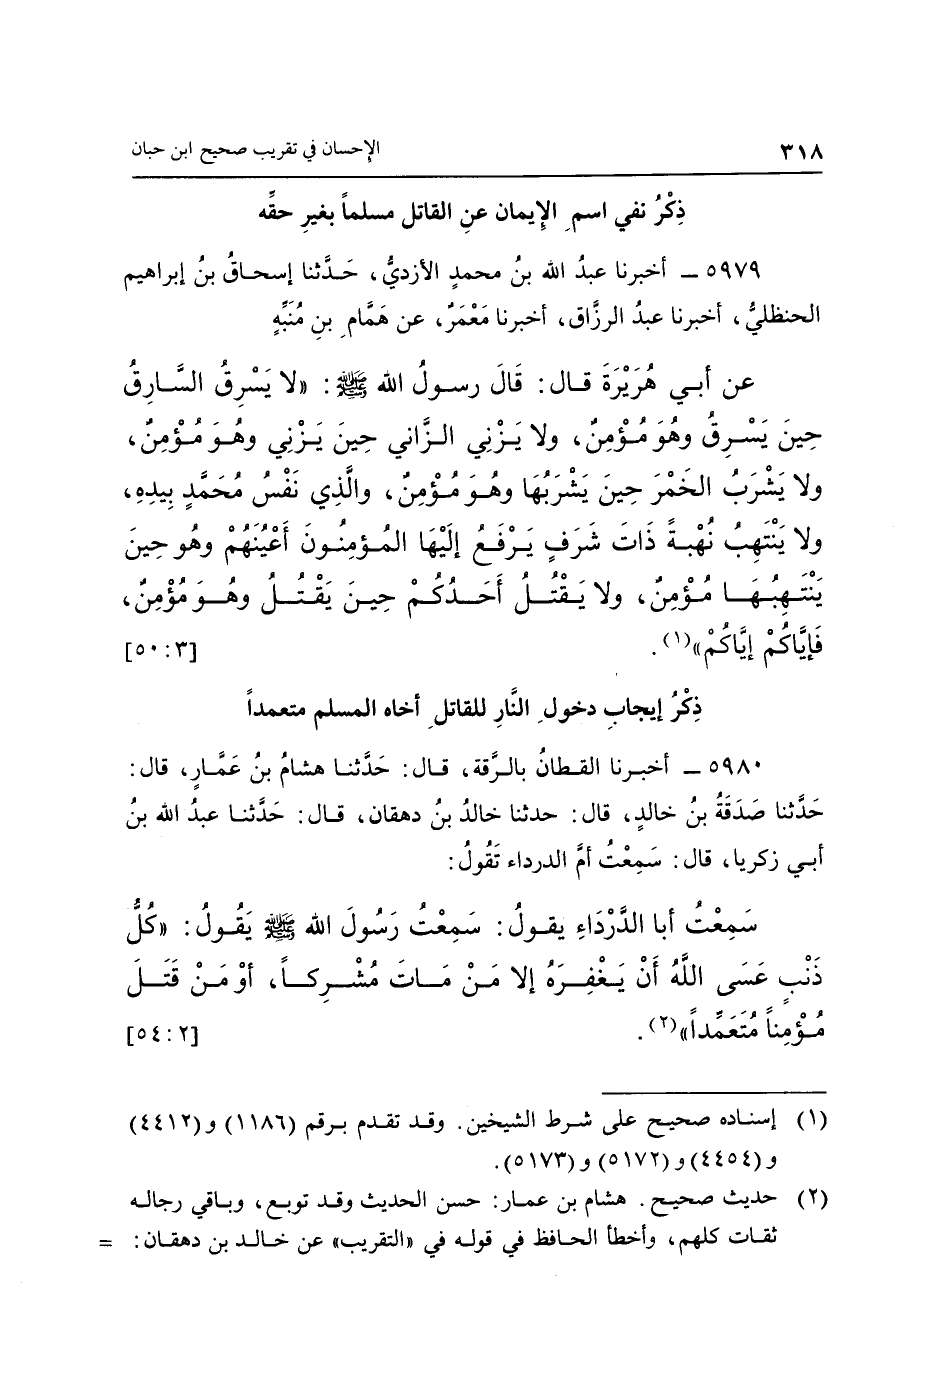 ٣١٨ الإحسان في تقريب صحيح ابن حبان
ذِكْرُ نفي اسمِ الإِيمان عنِ القاتل مسلماً بغيرِ حقِّه
٥٩٧٩ ـ أخبرنا عبدُ الله بنُ محمدٍ الأزديُّ، حَدَّثنا إسحاقُ بنُ إبراهيم
الحنظليُّ، أخبرنا عبدُ الرزَّاق، أخبرنا مَعْمَرٌ، عن هَمَّامِ بنِ مُنَبِّهٍ
عن أبي هُرَيْرَةَ قال: قَالَ رسولُ الله ﷺ: «لا يَسْرِقُ السَّارِقُ
حِينَ يَسْرِقُ وهُوَ مُؤْمِنٌ، ولا يَزْنِي الزَّاني حِينَ يَزْنِي وهُوَ مُؤْمِنٌ،
ولا يَشْرَبُ الخَمْرَ حِينَ يَشْرَبُهَا وهُوَ مُؤْمِنٌ، والَّذِي نَفْسُ مُحَمَّدٍ بِيدِهِ،
ولا يَنْتَهِبُ نُهْبةً ذَاتَ شَرَفٍ يَرْفَعُ إلَيْهَا المُؤمِنُونَ أَعْيُنَهُمْ وهُو حِينَ
يَنْتَهِبُهَا مُؤْمِنٌ، ولا يَقْتُلُ أَحَدُكُمْ حِينَ يَقْتُلُ وهُوَ مُؤْمِنٌ،
فَإيَّاكُمْ إيَّاكُمْ»(١). [٥٠:٣]
ذِكْرُ إيجابِ دخولِ النَّارِ للقاتلِ أخاه المسلم متعمداً
٥٩٨٠ ـ أخبرنا القطانُ بالرَّقة، قال: حَدَّثنا هشامُ بنُ عَمَّارٍ، قال:
حَدَّثنا صَدَقَةُ بنُ خالدٍ، قال: حدثنا خالدُ بنُ دهقان، قال: حَدَّثنا عبدُ الله بنُ
أبي زكريا، قال: سَمِعْتُ أمَّ الدرداء تَقُولُ:
سَمِعْتُ أبا الدَّرْدَاءِ يقولُ: سَمِعْتُ رَسُولَ الله ﷺ يَقُولُ: «كُلُّ
ذَنْبٍ عَسَى اللَّهُ أَنْ يَغْفِرَهُ إلا مَنْ مَاتَ مُشْرِكاً، أوْ مَنْ قَتَلَ
مُؤْمِناً مُتَعَمِّداً»(٢). [٥٤:٢]
(١) إسناده صحيح على شرط الشيخين. وقد تقدم برقم (١١٨٦) و(٤٤١٢)
و(٤٤٥٤) و(٥١٧٢) و(٥١٧٣).
(٢) حديث صحيح. هشام بن عمار: حسن الحديث وقد توبع، وباقي رجاله
ثقات كلهم، وأخطأ الحافظ في قوله في «التقريب» عن خالد بن دهقان: =